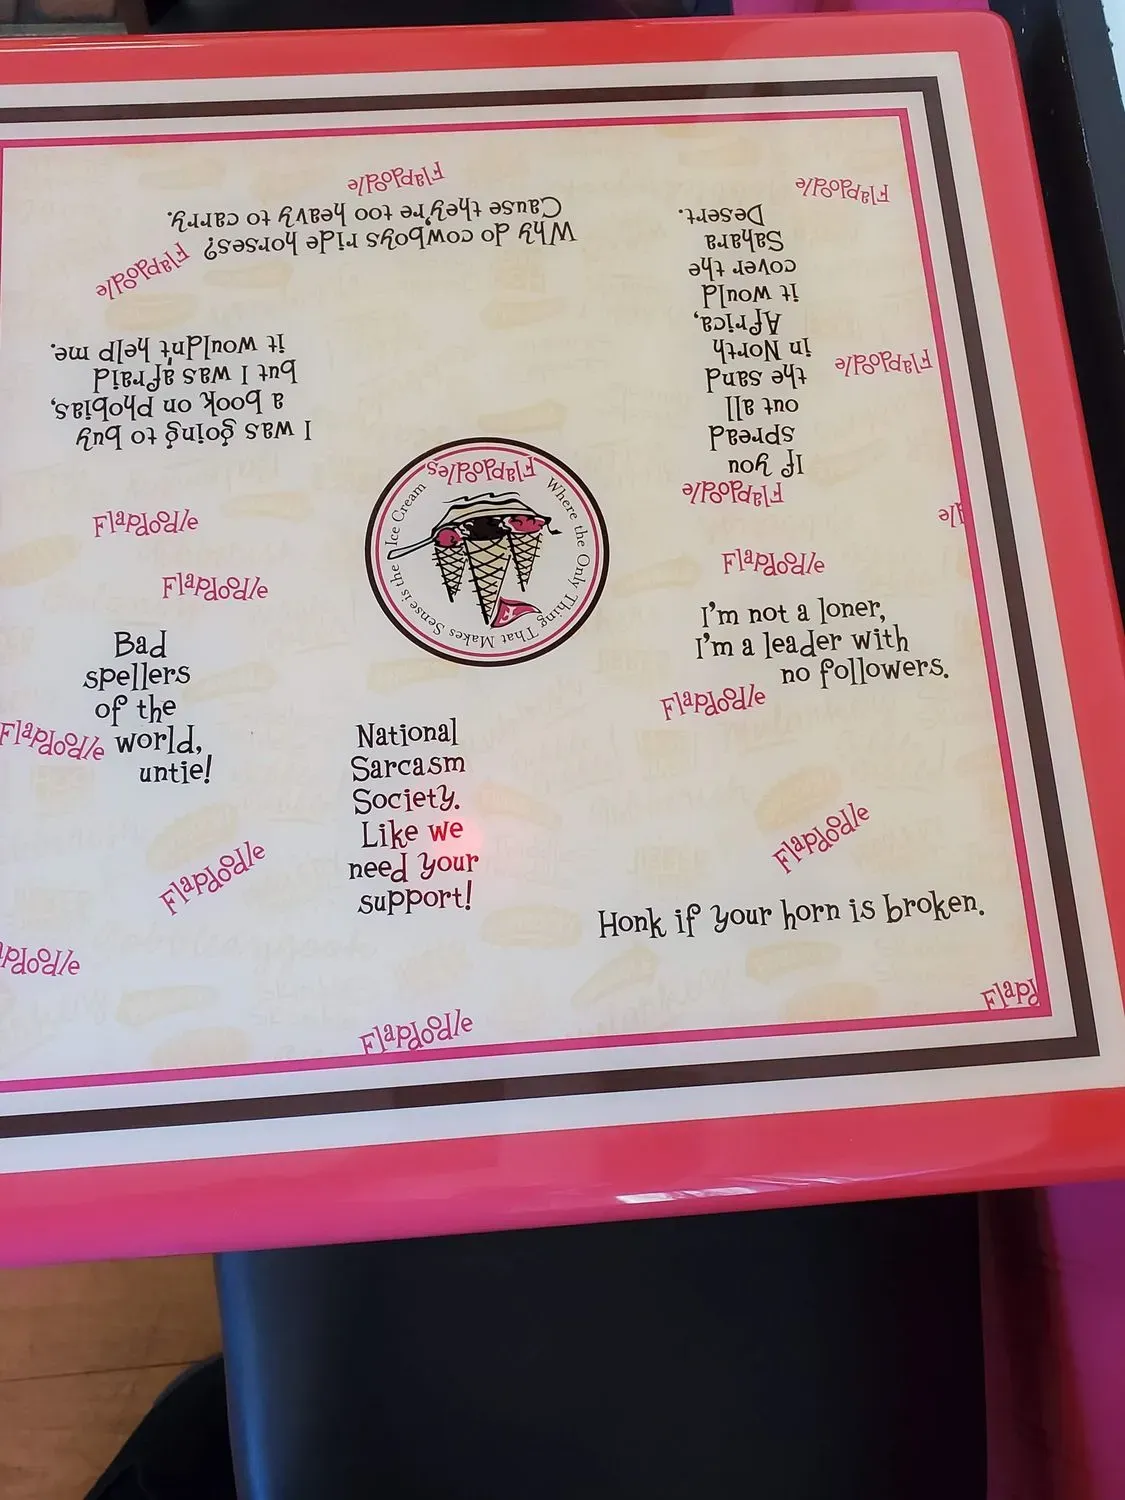 Flapdoodle
Why do cowboys ride horses?
Cause they're too heavy to carry.
Flapdoodle
Flapdoodle
If you
spread
out all
the sand
in North
Africa,
it would
cover the
Sahara
Desert.
Flapdoodle
Flapdoodle
I was going to buy
a book on phobias,
but I was afraid
it wouldn't help me.
Flapdoodles
Where the Only Thing That Makes Sense is the Ice Cream
F
Flapdoodle
Flapdoodle
Flapdoodle
le
I'm not a loner,
I'm a leader with
no followers.
Flapdoodle
Bad
spellers
of the
world,
untie!
Flapdoodle
National
Sarcasm
Society.
Like we
need your
support!
Flapdoodle
Flapdoodle
Honk if your horn is broken.
apdoodle
Flapdoodle
Flapd